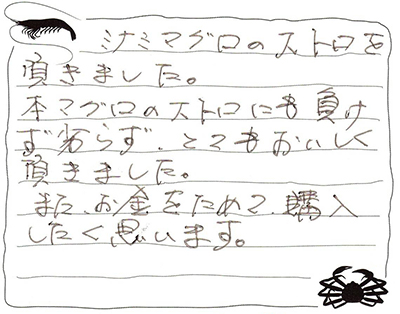 ミナミマグロのストロを
頂きました。
本マグロのストロにも負け
ず劣らず、とてもおいしく
頂きました。
また、お金をためて、購入
したく思います。